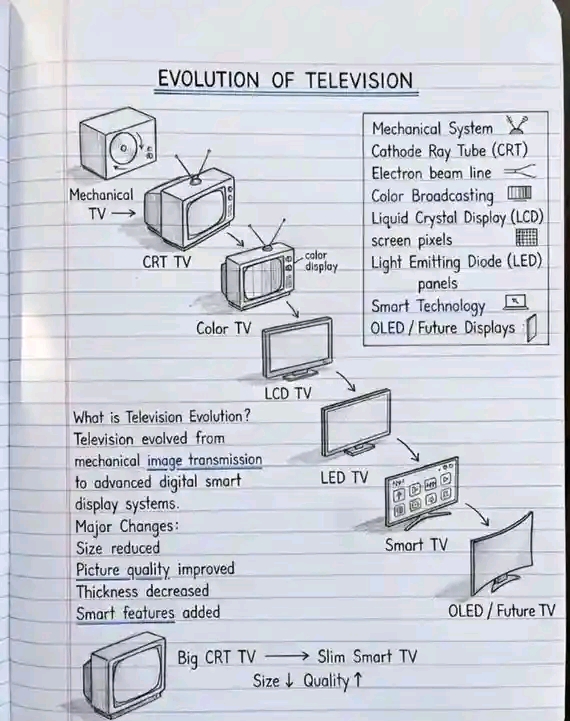 EVOLUTION OF TELEVISION
Mechanical
TV →
CRT TV
color
display
Color TV
LCD TV
LED TV
Smart TV
OLED / Future TV
Mechanical System
Cathode Ray Tube (CRT)
Electron beam line
Color Broadcasting
Liquid Crystal Display (LCD)
screen pixels
Light Emitting Diode (LED)
panels
Smart Technology
OLED / Future Displays
What is Television Evolution?
Television evolved from
mechanical image transmission
to advanced digital smart
display systems.
Major Changes:
Size reduced
Picture quality improved
Thickness decreased
Smart features added
Big CRT TV → Slim Smart TV
Size ↓ Quality ↑